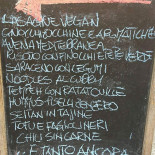 LASAGNE VEGAN
GNOCCHI ZUCCHINE E AROMATICHE
AVENA MEDITERRANEA
RUSSO CON FINOCCHI E TE VERDE
SARACENO CON LEGUMI
NOODLES AL CURRY
TEMPEH CON RATATOUILLE
HUMMUS FICHI E ZENZERO
SEITAN IN TAJINE
TOFU E FAGIOLINERI
CHILI SIN CARNE
E TANTO ANCORA